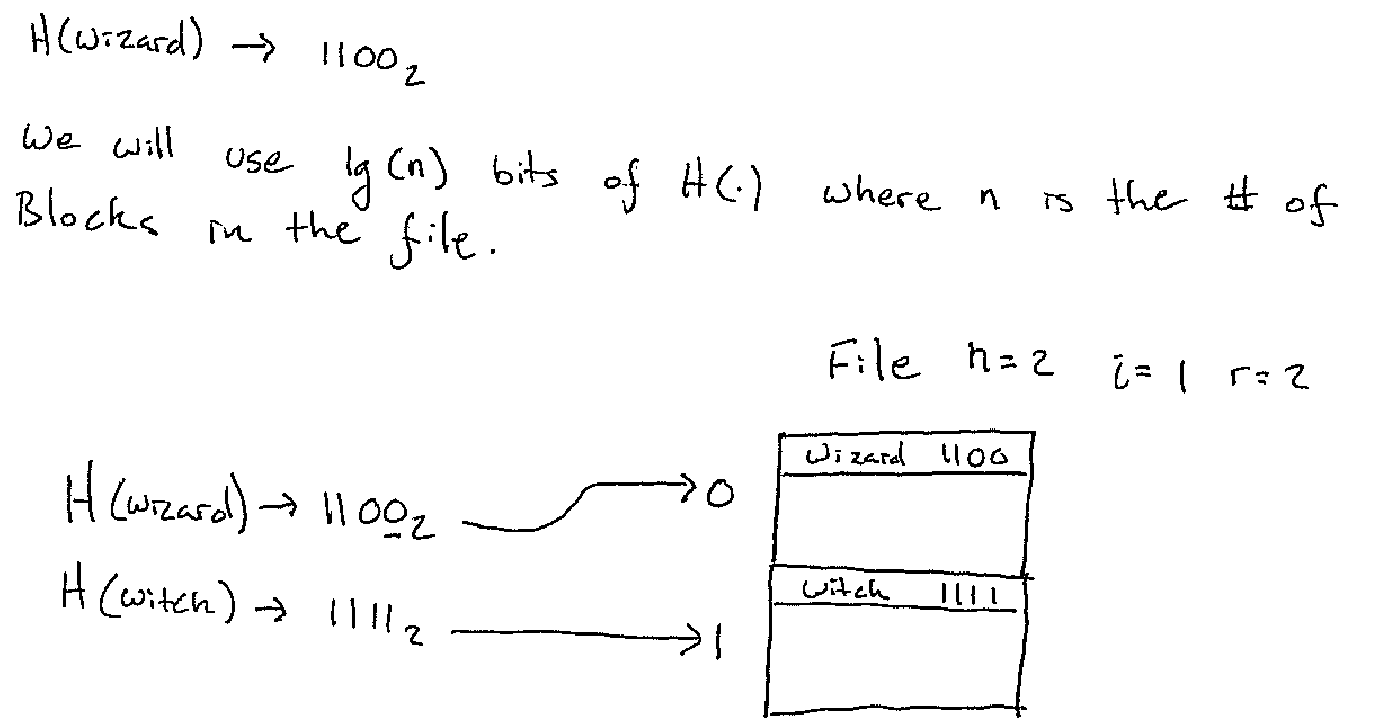 H(wizard) → 1100₂
We will use lg(n) bits of H(·) where n is the # of
Blocks in the file.
File n=2 i=1 r=2
Wizard 1100
H(wizard) → 1100₂ → 0
Witch 1111
H(witch) → 1111₂ → 1